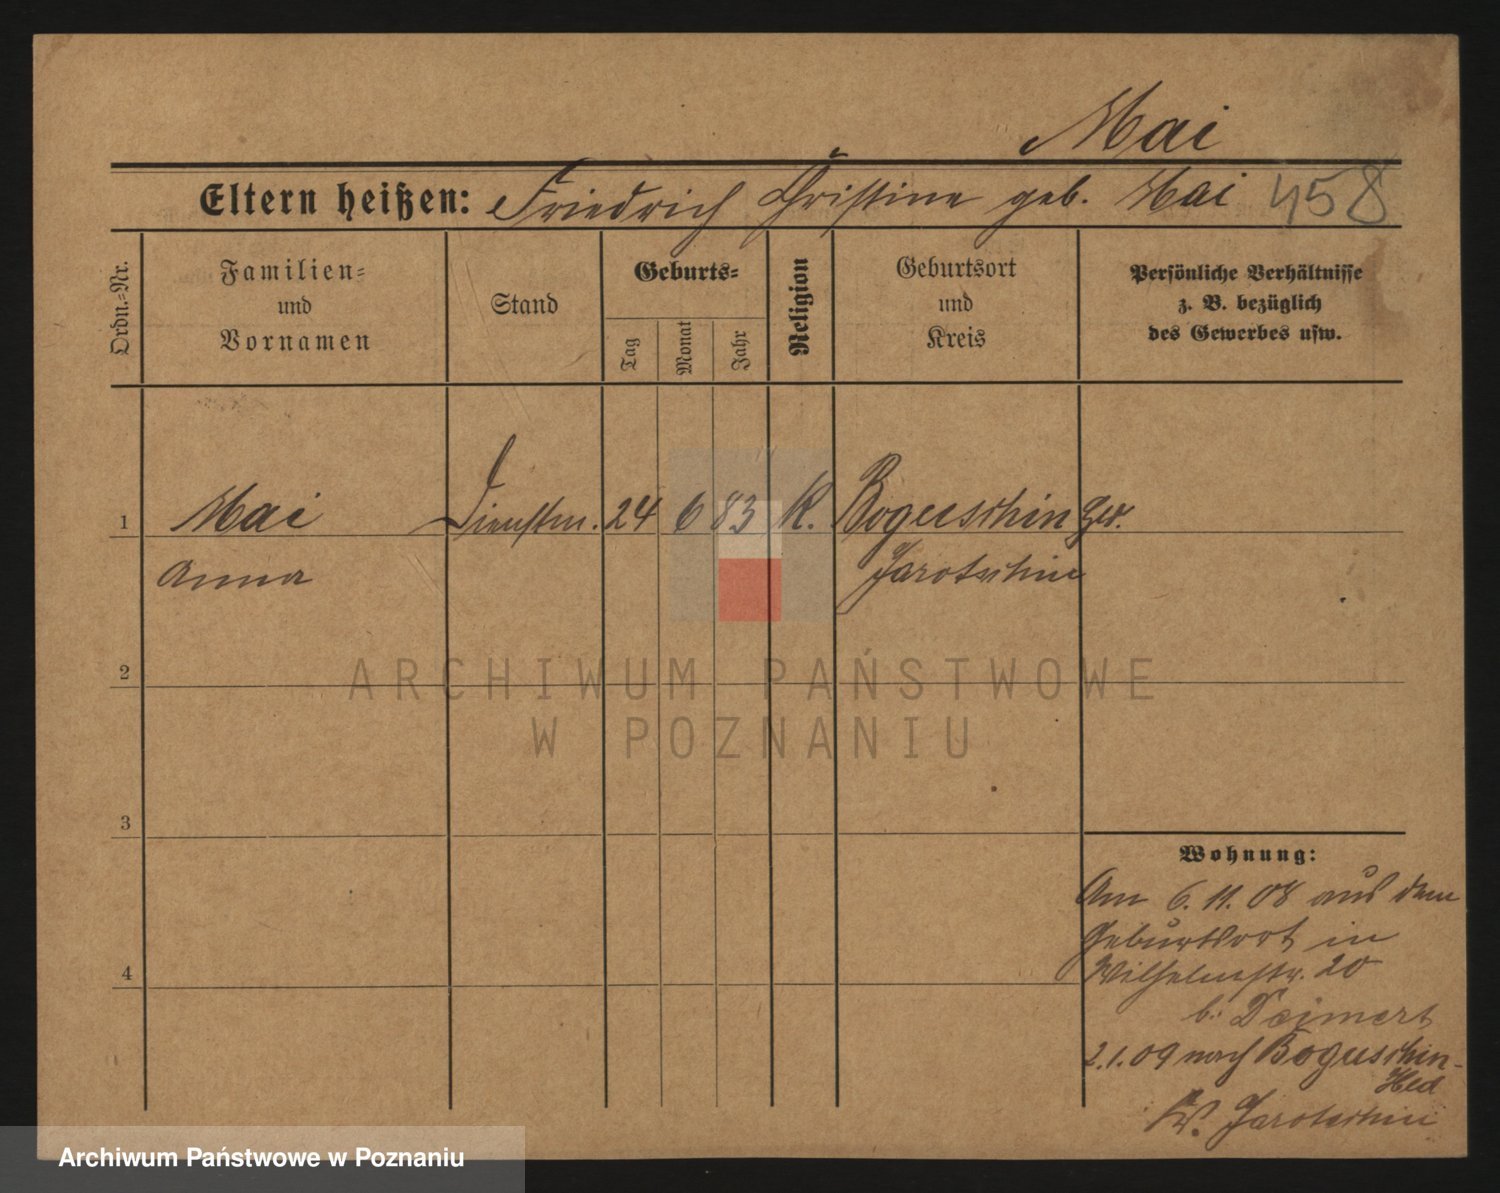 Mai
Eltern heißen: Friedrich Christine geb. Mai 458
Ordn.-Nr.
Familien-
und
Vornamen
Stand
Geburts-
Tag
Monat
Jahr
Religion
Geburtsort
und
Kreis
Persönliche Verhältnisse
z. B. bezüglich
des Gewerbes usw.
1 Mai Dienstm. 24 6 83 K. Boguschin
Anna Jarotschin
2
3
4
Wohnung:
Am 6.11.08 aus dem
Geburtsort in
Wilhelmstr. 20
b.
2.1.09 nach Boguschin-
Hld
Kr. Jarotschin
ARCHIWUM PAŃSTWOWE
W POZNANIU
Archiwum Państwowe w Poznaniu